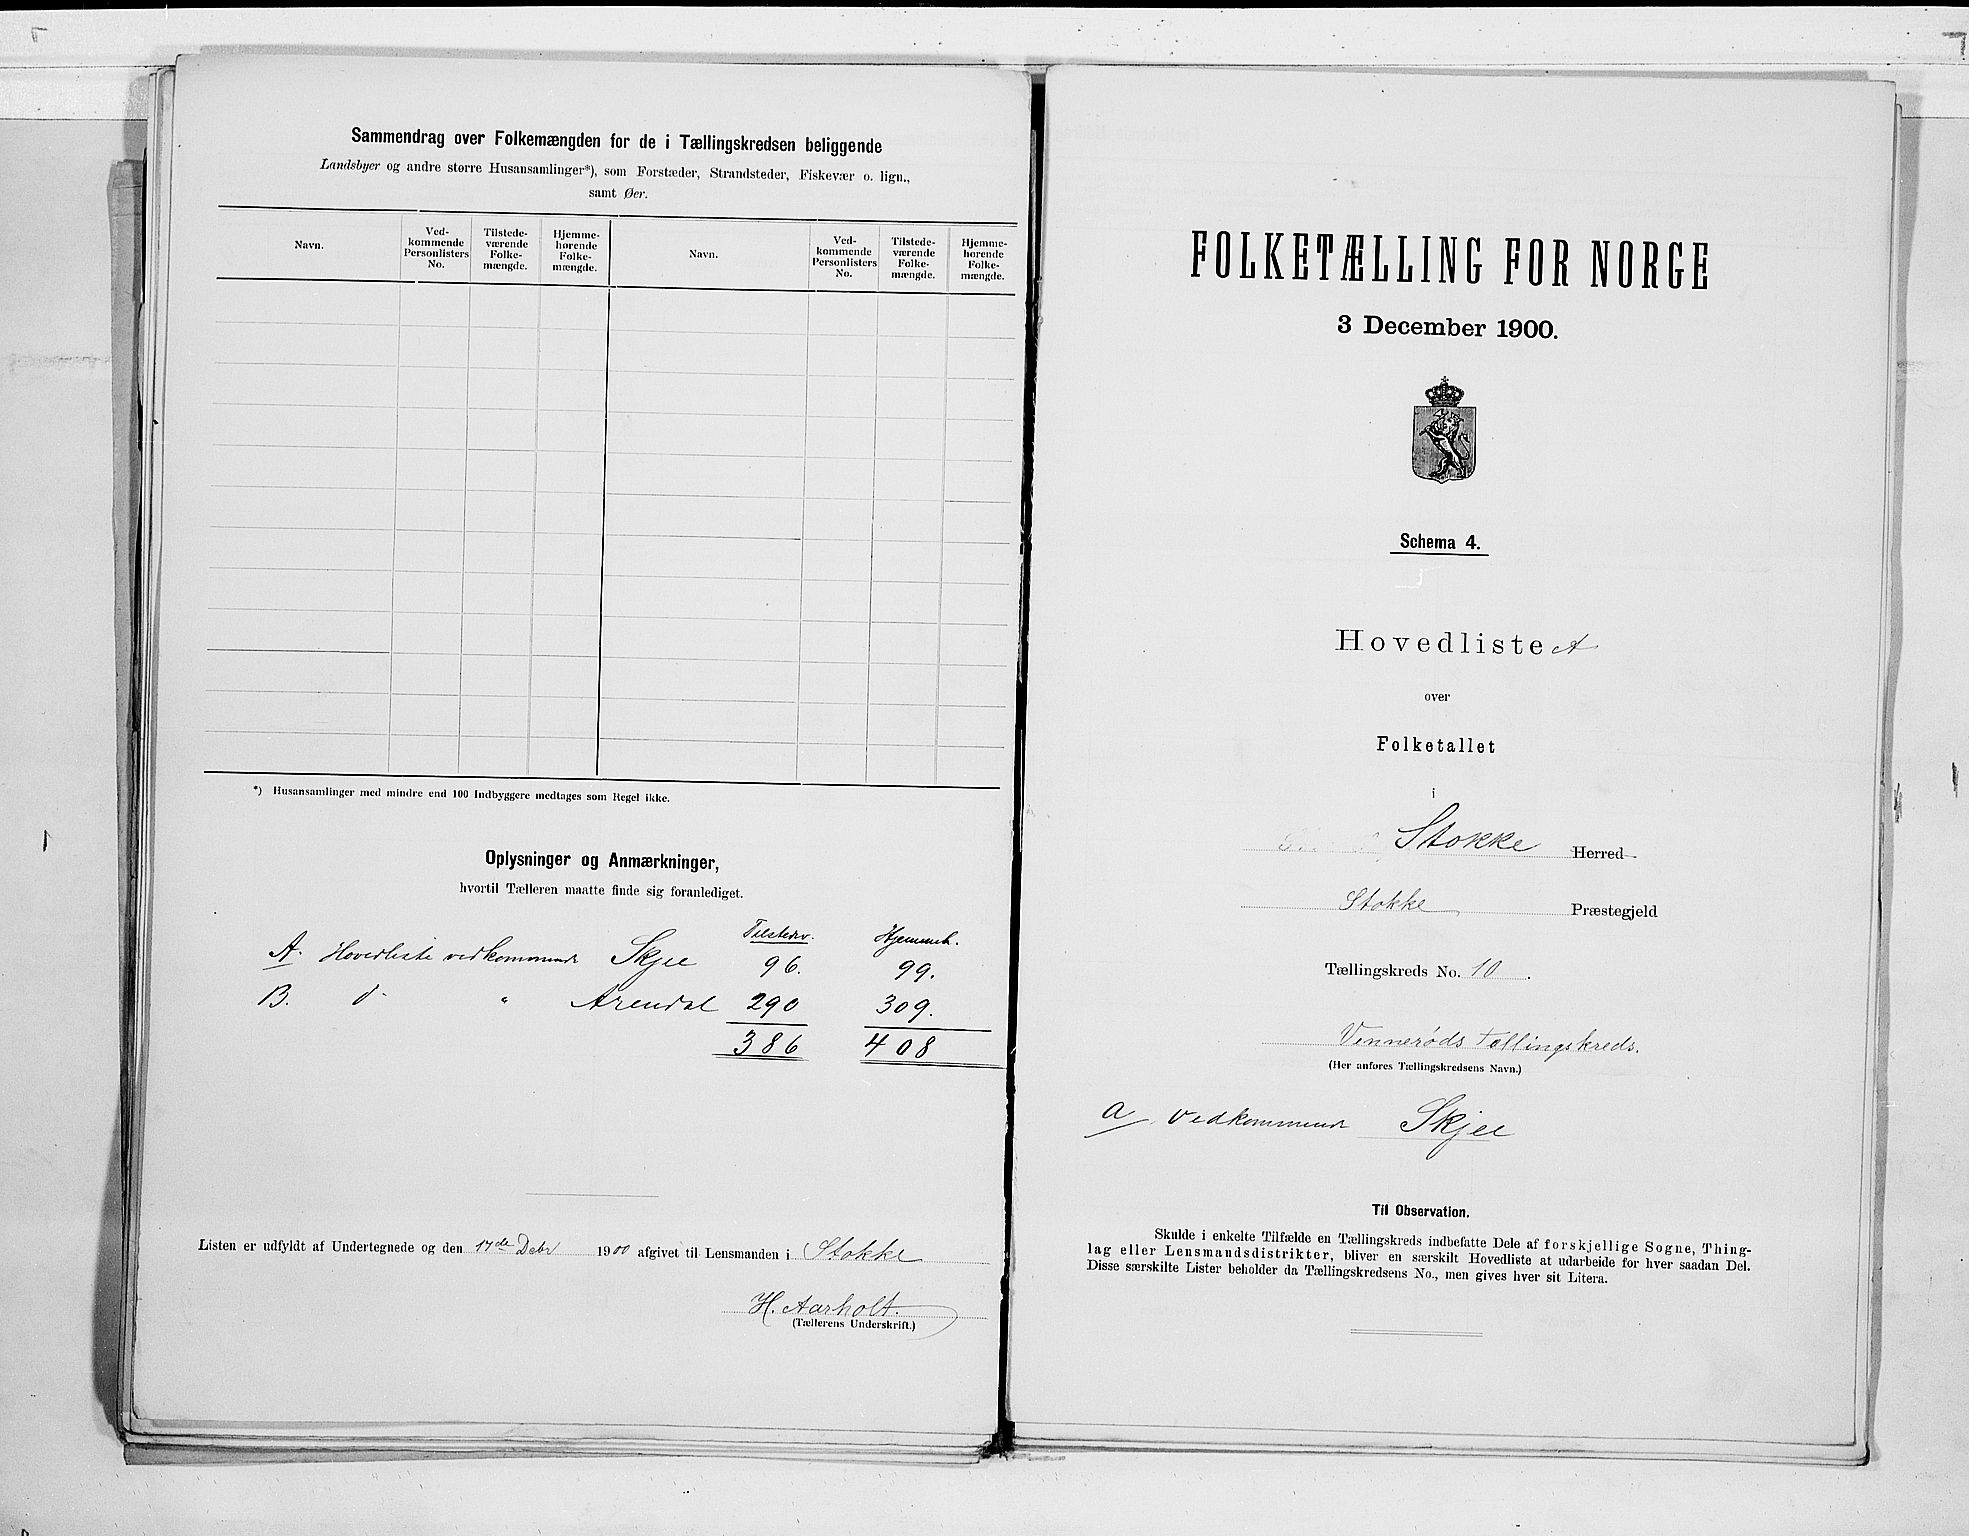 Sammendrag over Folkemængden for de i Tællingskredsen beliggende
Landsbyer og andre større Husansamlinger*), som Forstæder, Strandsteder, Fiskevær o. lign.,
samt Øer.
Navn. Ved-kommende Personlisters No. Tilstede-værende Folke-mængde. Hjemme-hørende Folke-mængde. Navn. Ved-kommende Personlisters No. Tilstede-værende Folke-mængde. Hjemme-hørende Folke-mængde.
*) Husansamlinger med mindre end 100 Indbyggere medtages som Regel ikke.
Oplysninger og Anmærkninger,
hvortil Tælleren maatte finde sig foranlediget.
Tilstedv. Hjemmeh.
A. Hovedliste vedkommende Skjee 96. 99.
B. d- " Arendal 290 309.
386 408
Listen er udfyldt af Undertegnede og den 17de Debr 1900 afgivet til Lensmanden i Stokke
H. Aarholt.
(Tællerens Underskrift.)
FOLKETÆLLING FOR NORGE
3 December 1900.
Schema 4.
Hovedliste A
over
Folketallet
i
Stokke Herred
Stokke Præstegjeld
Tællingskreds No. 10.
Vennerøds Tællingskreds.
(Her anføres Tællingskredsens Navn.)
a vedkommende Skjee
Til Observation.
Skulde i enkelte Tilfælde en Tællingskreds indbefatte Dele af forskjellige Sogne, Thing-
lag eller Lensmandsdistrikter, bliver en særskilt Hovedliste at udarbeide for hver saadan Del.
Disse særskilte Lister beholder da Tællingskredsens No., men gives hver sit Litera.